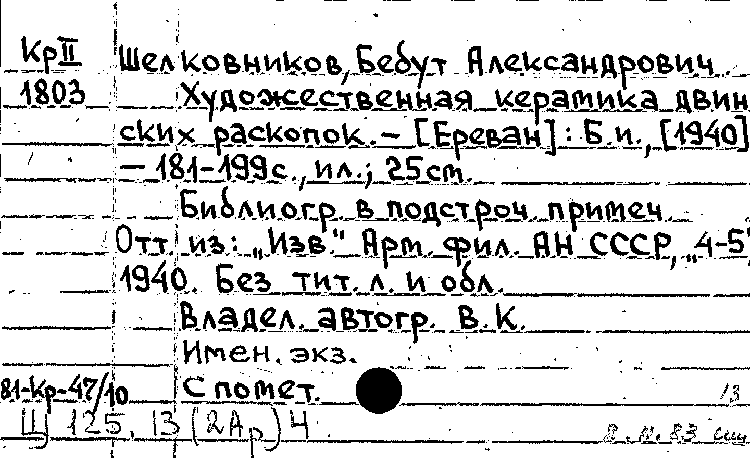 КрII Шелковников, Бебут Александрович
1803 Художественная керамика двин
ских раскопок. – [Ереван] : Б.и., [1940]
– 181–199 с., ил.; 25 cm.
Библиогр. в подстроч. примеч.
Отт. из: „Изв." Арм. фил. АН СССР, „4-5"
1940. Без тит. л. и обл.
Владел. автогр. В.К.
Имен. экз.
81-Кр-47/10 С помет. 13
Щ 125. 13 (2Ар) 4
83